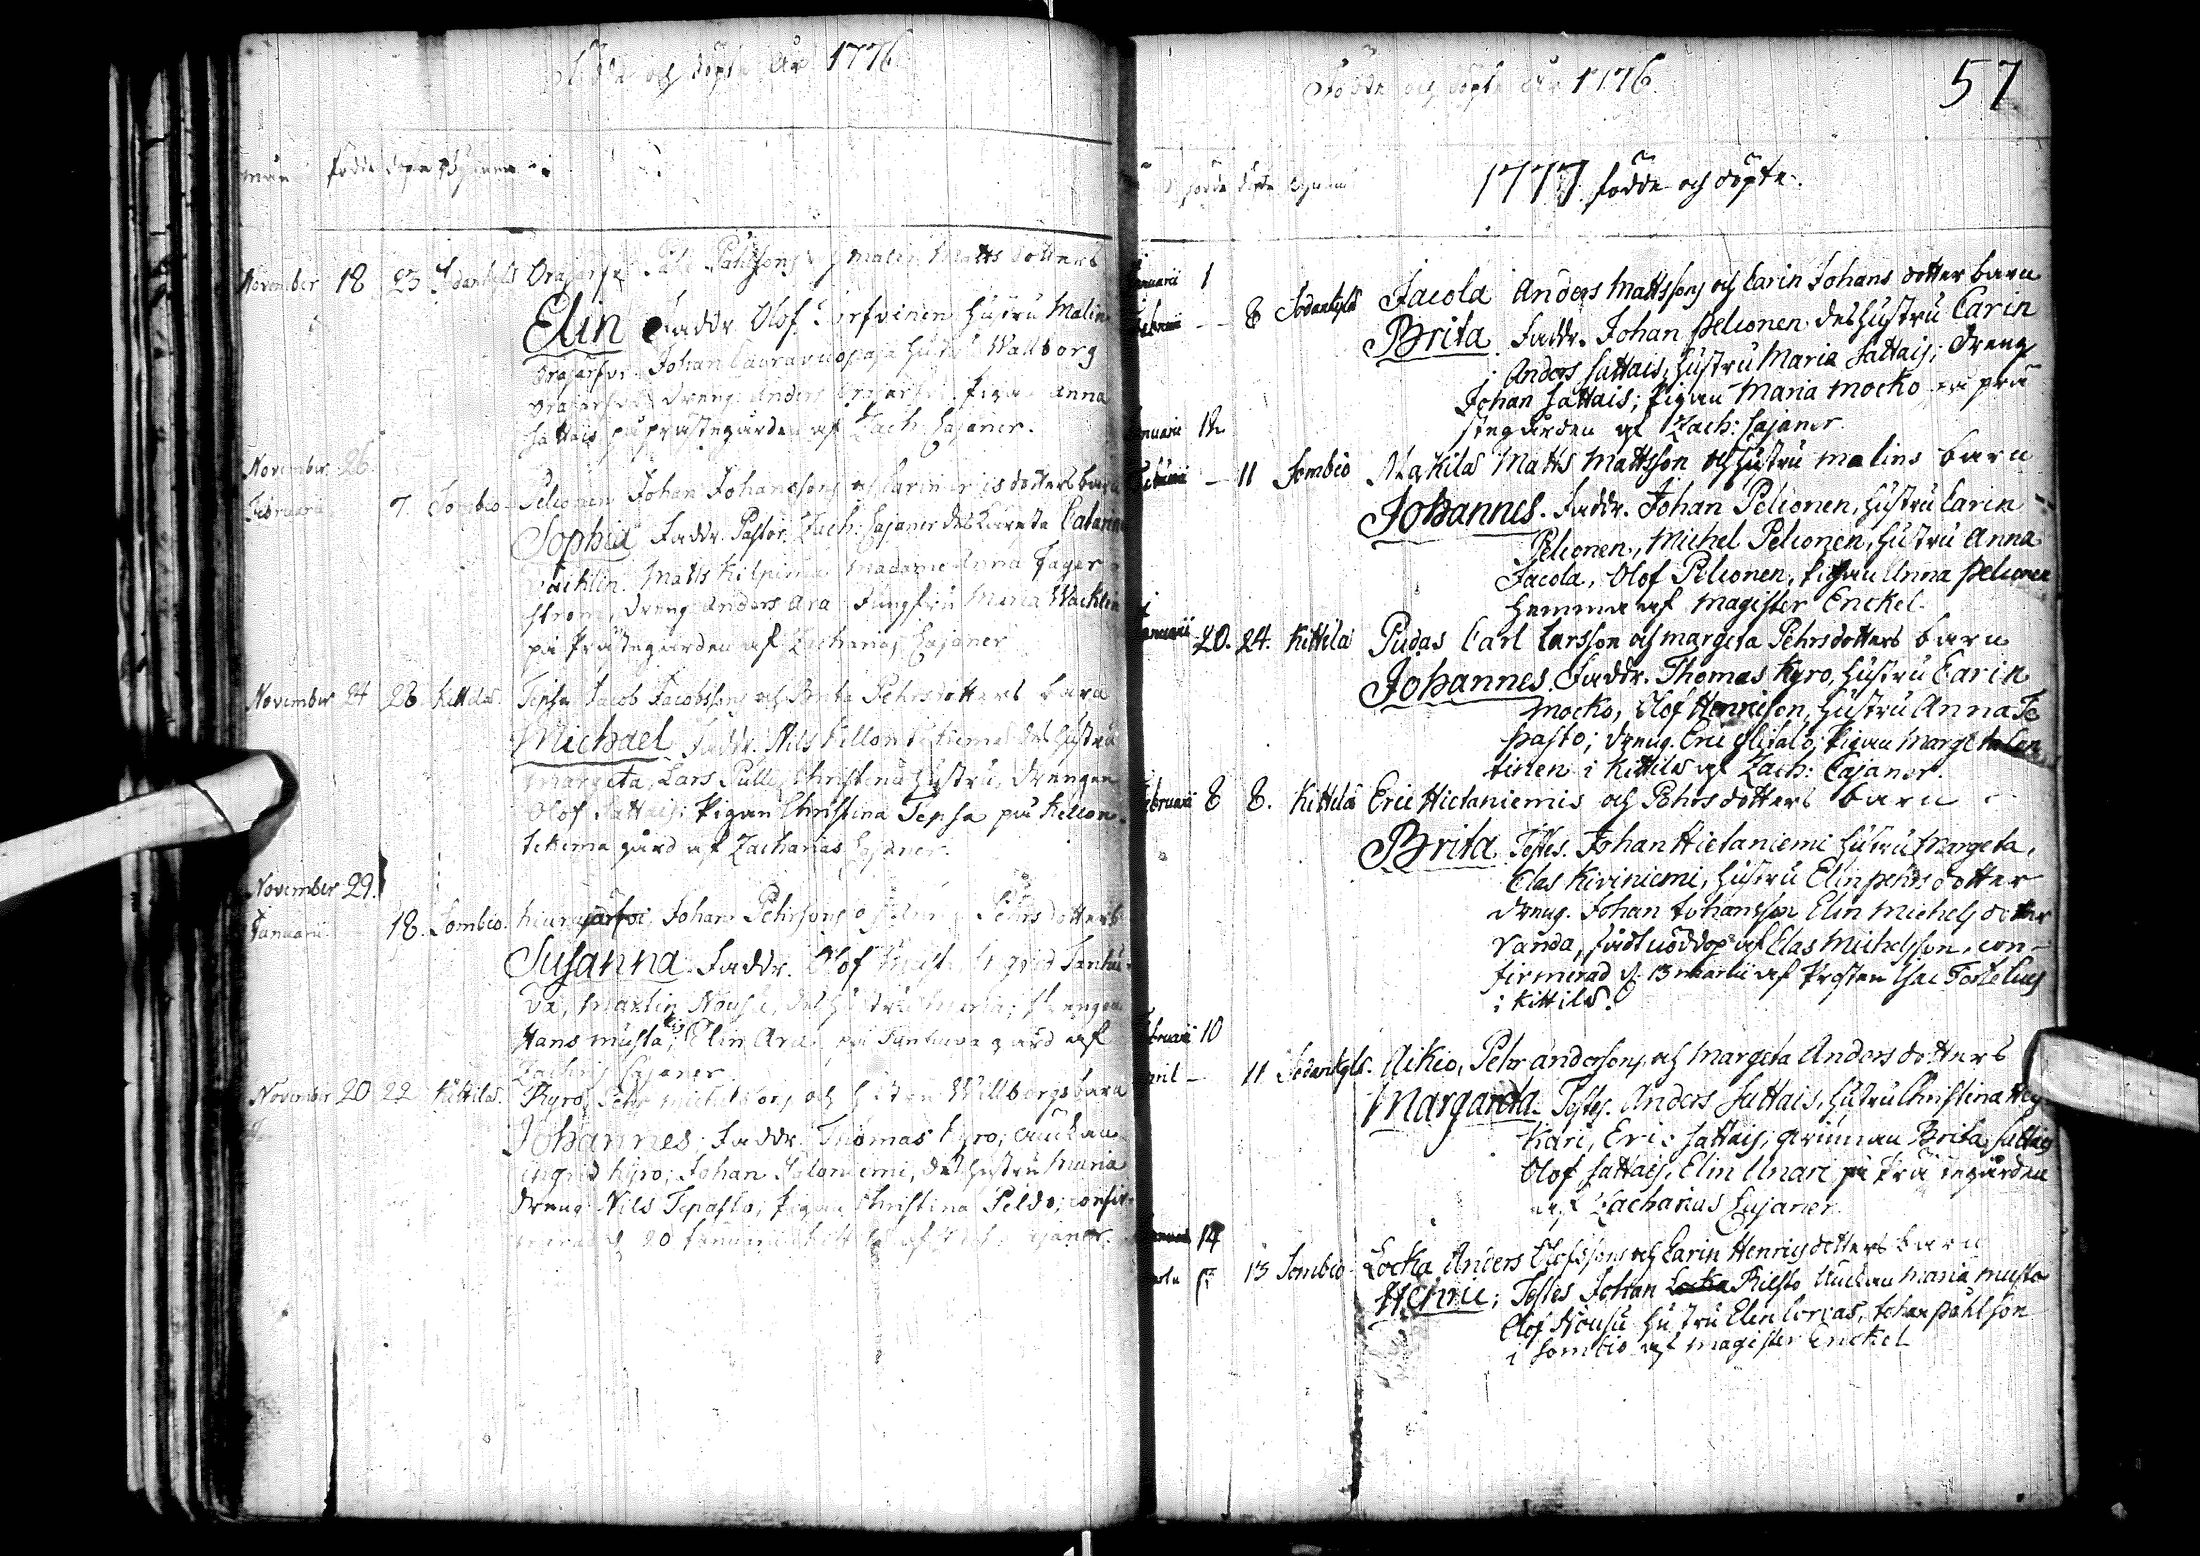 Födde och döpte År 1776
födde döpte
November 18 23 Sodankyla Orajarfvi Påhl Påhlssons och Malin Matts dotters
Elin Faddr. Olof hustru Malin
Orajarfvi Johan hustru Wallborg
Orajarfvi dreng Anders Orajarfvi Pigan Anna
Sattais på prästegården af Zach: Cajaner.
November 26
Februarii 7. Sombio Pelionen Johan Johanssons och Carin dotters barn
Sophia Faddr. Pastor Zach: Cajaner des kiæresta Catarina
Wacklin Matts Kilpimaa Madame Anna Fager
ström, dreng Anders Ara Jungfru Maria Wacklin
på Prästegården af Zacharias Cajaner
November 24 28 Kittila. Tepsa Jacob Jacobssons och Brita Pehrsdotters barn
Michael Faddr. Nils Killontekiema des hustru
Margeta, Lars Pulli Christina hustru, drengen
Olof Sattais; Pigan Christina Tepsa på Kellon-
tekema gård af Zacharias Cajaner.
November 29.
Januarii 18. Sombio. hiurujarfvi Johan Pehrssons Pehrsdotters
Susanna. Faddr. Olof Ingrid Tanhu-
va, Martin Nousu, des hustru Maria; drengen
Hans Musta; Elin Ara på Tanhuva gård af
Zach: Cajaner
November 20 22 Kittila. Kyrö Pehr Michelssons och hustru Wallborgs barn
Johannes. Faddr. Thomas Kyrö; änckan
Ingrid Kyrö; Johan Saloniemi, des hustru Maria
dreng Nils Tepasto, Pigan Christina Peldo; confir-
merad d. 20 Januarii i Kittila af Zach: Cajaner.
Födde och döpte År 1776.
57
födde döpte
1777 födde och döpte.
Januarii 1
Februarii - 8 Sodankyla Jacola Anders Mattssons och Carin Johans dotter barn
Brita. Faddr. Johan Pelionen des hustru Carin
Anders Sattais, hustru Maria Sattais; dreng
Johan Sattais; Pigan Maria Mocko på prä-
stegården af Zach: Cajaner.
Januarii 12
Februarii - 11 Sombio Matts Mattsson och hustru Malins barn
Johannes. Faddr. Johan Pelionen, hustru Carin
Pelionen, Michel Pelionen, hustru Anna
Jacola, Olof Pelionen, Pigan Anna Pelionen
hemma af Magister Enckel.
Januarii 20. 24. Kittila Pudas Carl Larsson och Margeta Pehrsdotters barn
Johannes. Faddr. Thomas Kyro, hustru Carin
Mocko, Olof Henrison, hustru Anna Te
pasto; dreng. Eric Ylitalo, Pigan Margeta
tinen i Kittila af Zach: Cajaner.
Februarii 8 8. Kittila Eric Hietaniemis och Pehrsdotters barn
Brita Testes. Johan Hietaniemi hustru Margeta,
Clas Kiviniemi, hustru Elin Pehrsdotter
dreng. Johan Johansson Elin Michelsdotter
Vanda, fådt nöddop af Clas Michelsson, con-
firmerad d. 13 Martii af Prosten Isac Tortelius
i Kittila.
Februarii 10
April - 11 Sodankyla. Aikio, Pehr Anderssons och Margeta Anders dotters
Margareta. Testes. Anders Sattais, hustru Christina
Kari, Eric Sattais; qvinnan Brita Sattais
Olof Sattais, Elin Unari på Prästegården
af Zacharias Cajaner.
14
13 Sombio Locka Anders Olofssons och Carin Henrisdotters barn
Henric; Testes Johan Riesto Änckan Maria Musta
Olof Nousu hustru Elin Corvas, Johan Påhlson
i Sombio af Magister Enckel